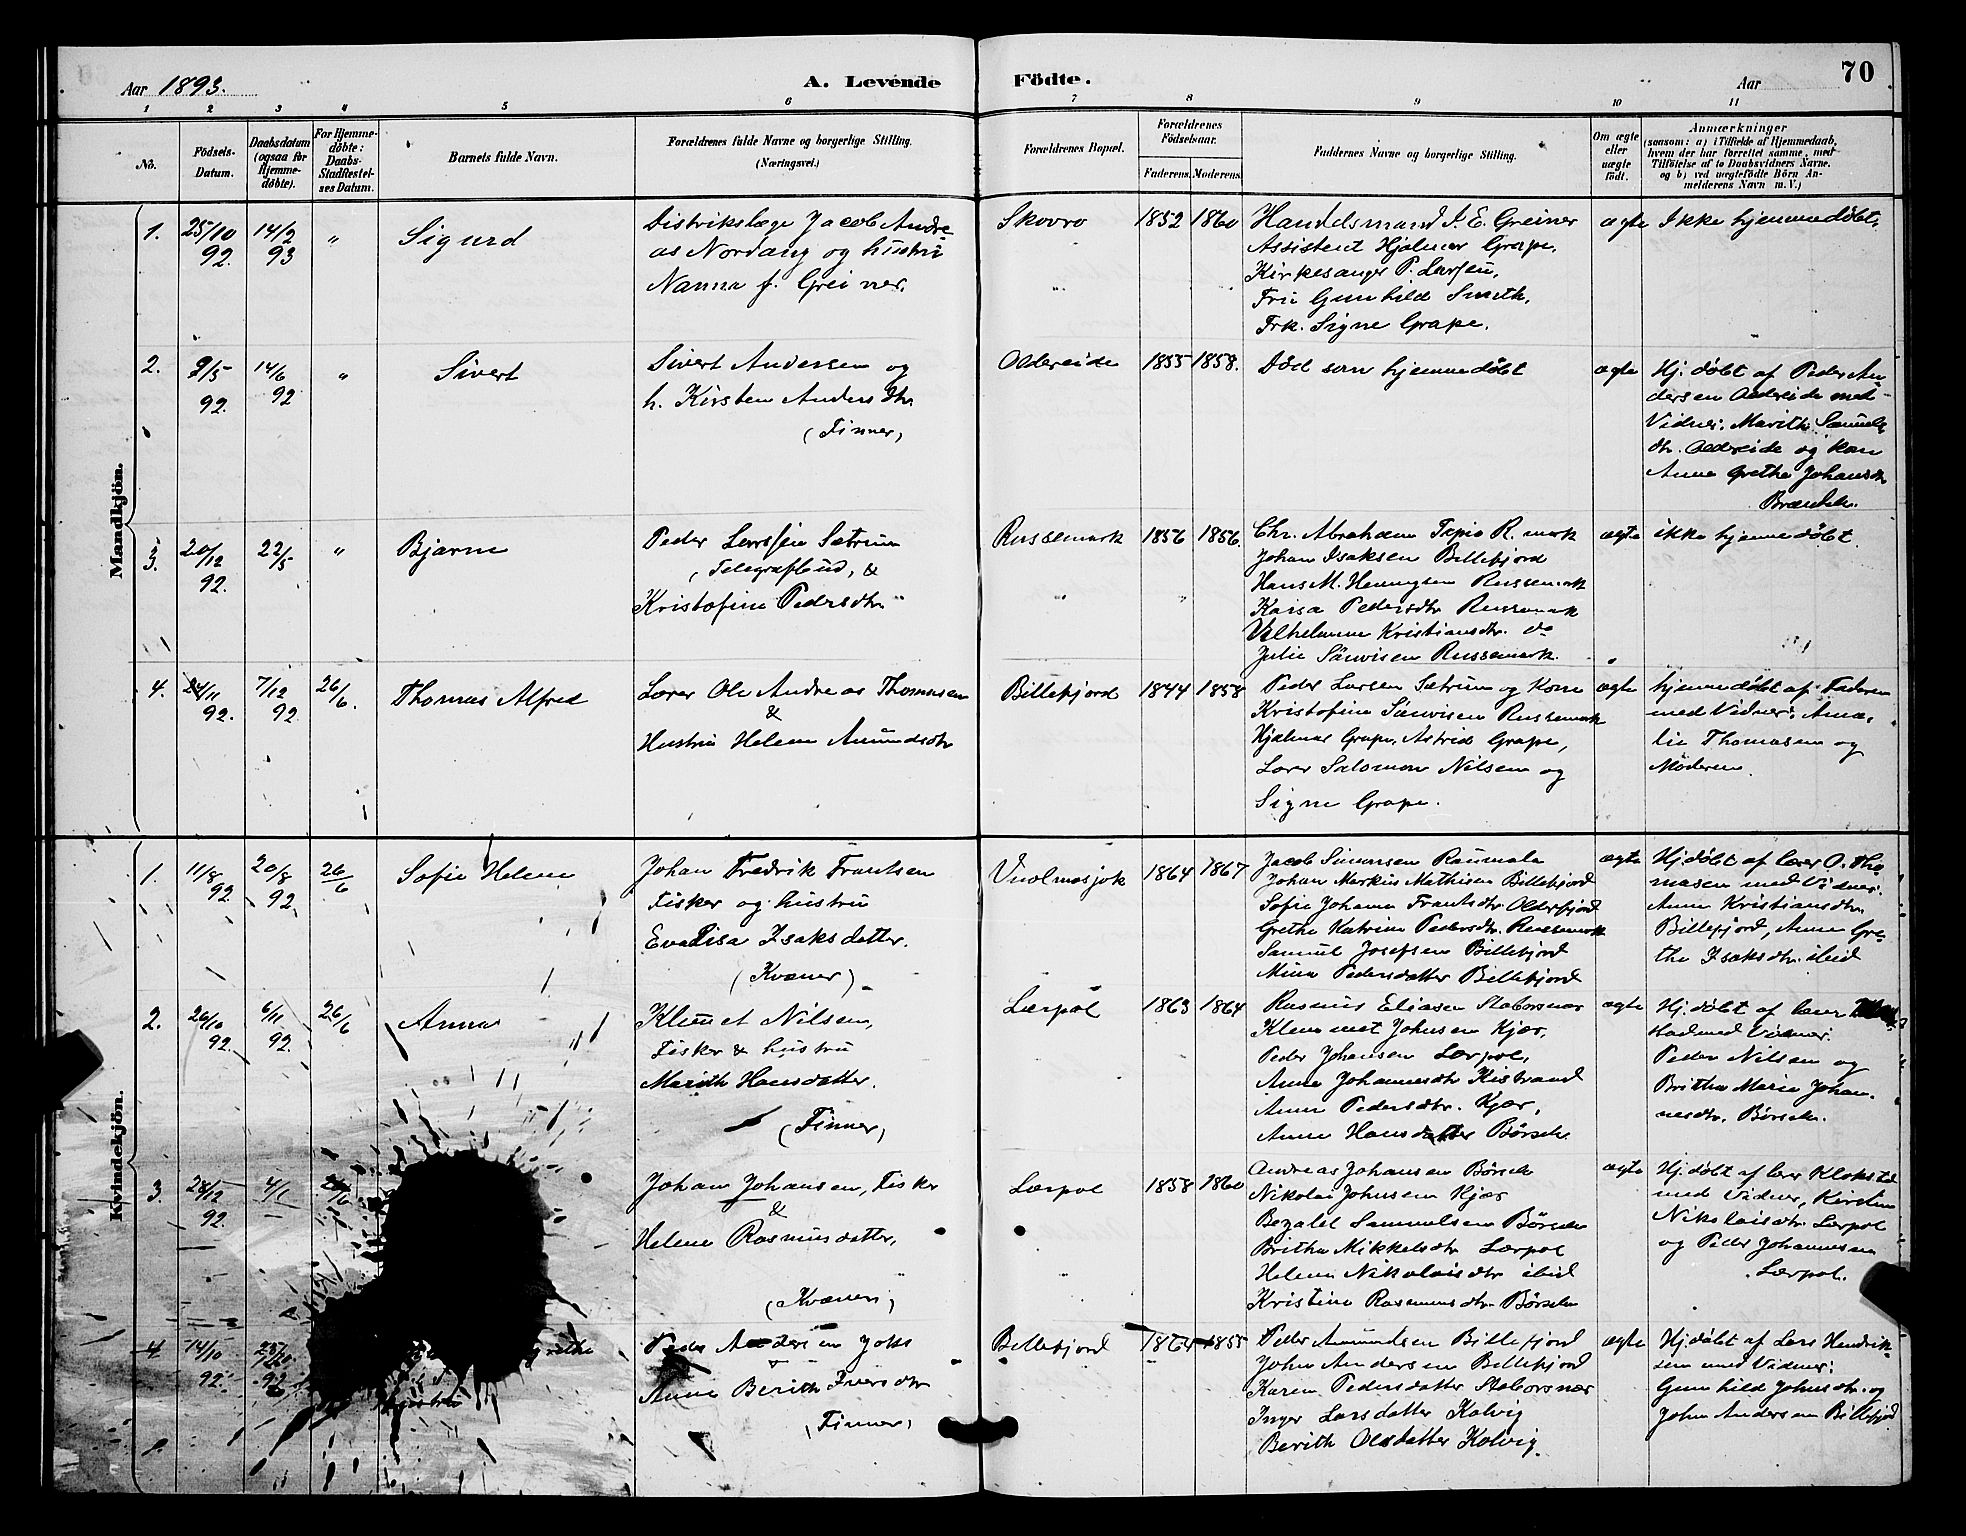 Aar 1893.
A. Levende
Födte.
Aar
70
1 2 3 4 5 6 7 8 9 10 11
No.
Födsels-
Datum.
Daabsdatum
(ogsaa for
Hjemme-
döbte).
For Hjemme-
döbte:
Daabs-
Stadfæstel-
ses Datum.
Barnets fulde Navn.
Forældrenes fulde Navne og borgerlige Stilling.
(Næringsvei.)
Forældrenes Bopæl.
Forældrenes
Födselsaar.
Faderens.
Moderens.
Faddernes Navne og borgerlige Stilling.
Om ægte
eller
uægte
født.
Anmærkninger
(saasom: a) i Tilfælde af Hjemmedaab,
hvem der har forrettet samme, med
Tilföielse af to Daabsvidners Navne.
og b) ved uægtefödte Börn An-
melderens Navn m. V.)
Mandkjön.
1.
25/10
92.
14/2
93
"
Sigurd
Distriktslæge Jacob Andre
as Nordang og hustru
Nanna f. Greiner.
Skovro
1852
1860
Handelsmand I. E. Greiner
Assistent Hjalmar Grape,
Kirkesanger P. Larsen,
Fru Gunhild Smith,
Frk. Signe Grape.
ægte
Ikke hjemmedøbt.
2.
9/5
92.
14/6
92
"
Sivert
Sivert Andersen og
h. Kirsten Andersdtr.
(Finner)
Oldereide
1855
1858.
Död som hjemmedøbt
ægte
Hj. døbt af Peder An
dersen Oldereide med
Vidner: Marith Samuels
dtr. Oldereide og kone
Anne Grethe Johansdtr
3.
20/12
92.
22/5
"
Bjarne
Peder Larssen Sætrum
(Telegrafbud, &
Kristofine Pedersdtr.
Russemark
1856
1856.
Chr. Abraham R. mark
Johan Isaksen Billefjord
Hans M. Henrigsen Russemark
Kaisa Pedersdtr Russemark
Vilhelmine Kristiansdtr. do
Julie Russemark.
ægte
ikke hjemmedøbt.
4.
24/11
92.
7/12
92
26/6.
Thomas Alfred
Lærer Ole Andreas Thomasen
&
Hustru Helene Amundsdtr
Billefjord
1844
1858
Peder Larsen Sætrum og Kone
Kristofine Russemark
Hjalmar Grape, Astrid Grape,
Lærer Salomon Nilsen og
Signe Grape.
ægte
hjemmedøbt af Faderen
med Vidner: Ama-
lie Thomasen og
Moderen.
Kvindekjön.
1.
11/8
92.
20/8
92
26/6
Sofie Helene
Johan Fredrik Frantsen
Fisker og hustru
Eva Lisa Isaksdatter.
(Kvæner)
Vuolmasjok
1864
1867
Jacob Simonsen Raumala
Johan Markus Mathisen Billefjord
Sofie Johanne Frantsdtr. Olderfjord
Grethe Katrine Pedersdtr. Russemark
Samuel Josefsen Billefjord
Mina Pedersdatter Billefjord
ægte
Hj. døbt af lærer O. Tho
masen med Vidner:
Anne Kristiansdtr.
Billefjord, Anne Gre-
the Isaksdtr. ibid
2.
26/10
92.
6/11
92.
26/6
Anna
Klemet Nilsen,
Fisker & hustru
Marith Hansdatter.
(Finner)
Lærpol
1863
1864
Rasmus Eliasen Staborsnæs
Klemmet Johnsen Kjær,
Peder Johansen Lærpol,
Anna Johannesdtr Kistrand
Anne Pedersdtr. Kjær,
Anne Hansdatter Børselv
ægte
Hj. døbt af lærer
stad med Vidner:
Peder Nilsen og
Britha Marie Johan-
nesdtr. Børselv.
3.
28/12
92.
4/1
26/6
Johan Johansen, Fisker
&
Helene Rasmusdatter,
(Kvæner)
Lærpol
1858
1860
Andreas Johansen Børselv
Nikolai Johnsen Kjær
Bezalel Sammelsen Børselv
Britha Mikkelsdtr Lærpol
Helene Nikolaisdtr ibid
Kristine Rasmusdtr. Børselv
ægte
Hj. døbt af lærer
med Vidner, Kirsten
Nikolaisdtr. Lærpol
og Peder Johannesen
Lærpol.
4
14/10
92.
92
grethe
Peder Andersen Joks
Anne Berith Iversdtr
(Finner)
Billefjord
1864
1855
Peder Amundsen Billefjord
John Andersen Billefjord
Karen Pedersdatter Staborsnæs
Inger Larsdatter Kolvig
Berith Olsdatter Kolvig.
ægte
Hj. døbt af Lars Hendrik-
sen med Vidner:
Gunhild Johnsdtr. og
John Andersen Billefjord